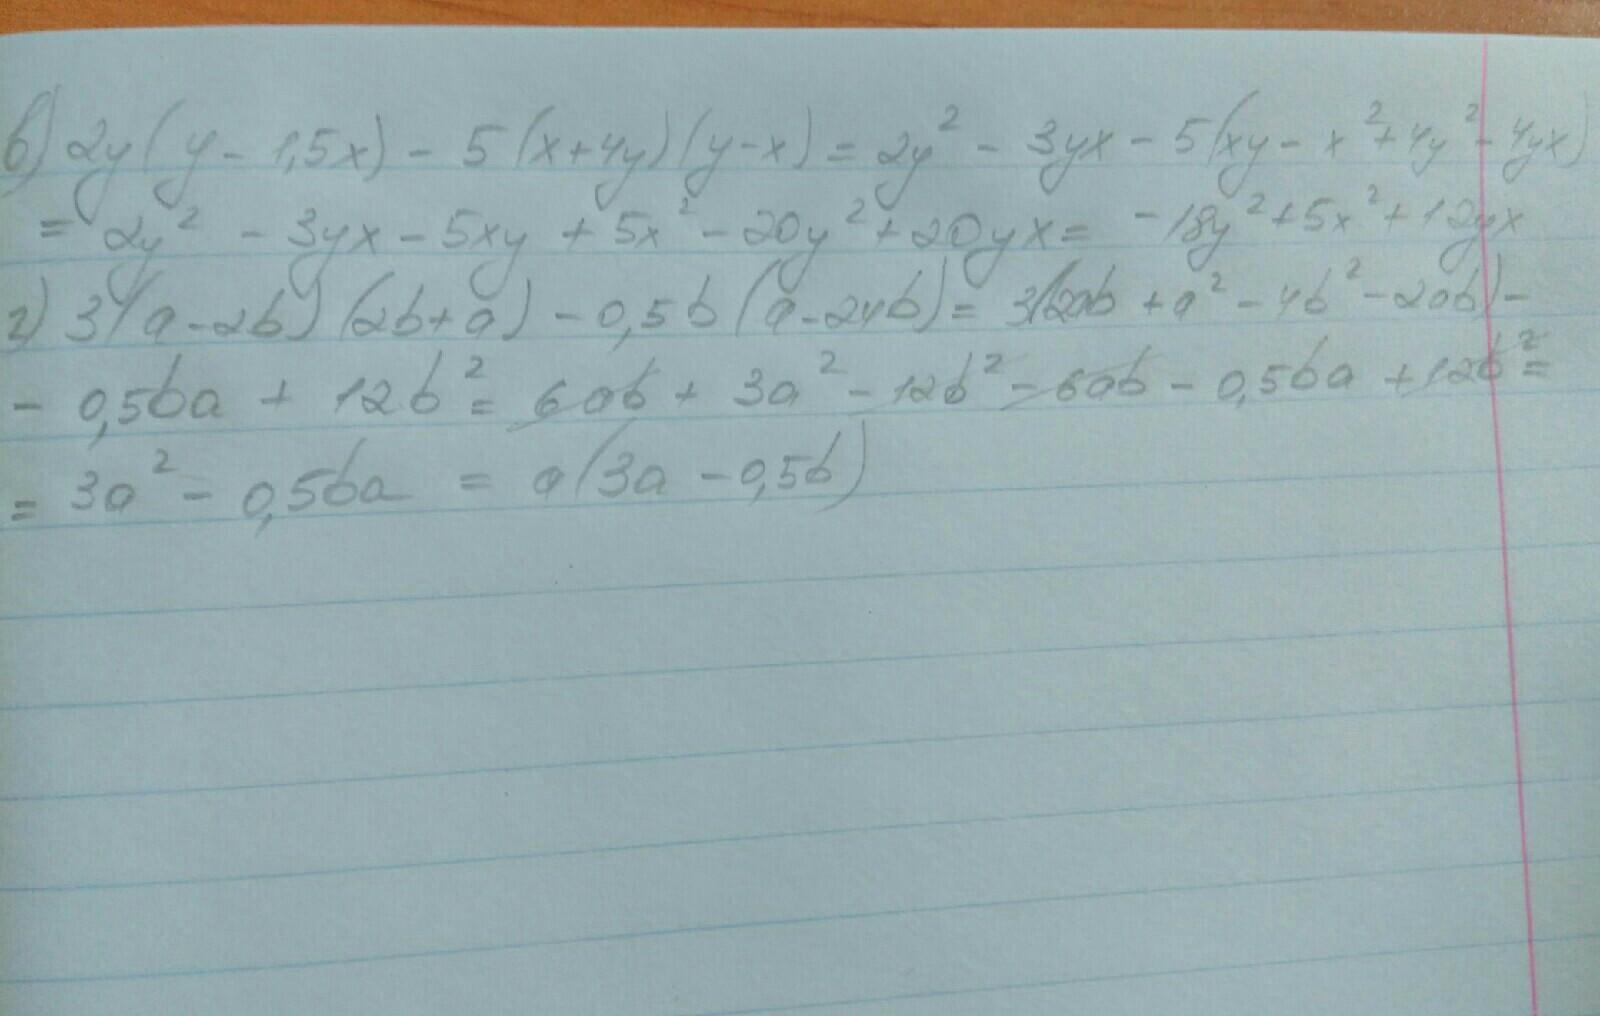 в) 2y(y - 1,5x) - 5(x+4y)(y-x) = 2y² - 3yx - 5(xy - x² + 4y² - 4yx)
= 2y² - 3yx - 5xy + 5x² - 20y² + 20yx = -18y² + 5x² + 12yx
г) 3(a-2b)(2b+a) - 0,5b(a-24b) = 3(2ab + a² - 4b² - 2ab) -
- 0,5ba + 12b² = 6ab + 3a² - 12b² - 6ab - 0,5ba + 12b² =
= 3a² - 0,5ba = a(3a - 0,5b)